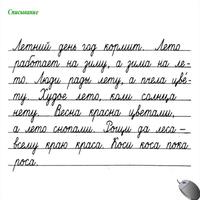 Списывание
Летний день год кормит. Лето
работает на зиму, а зима на ле-
то. Люди рады лету, а пчела цве-
ту. Худое лето, коли солнца
нету. Весна красна цветами,
а лето снопами. Рощи да леса –
всему краю краса. Коси коса пока
роса.